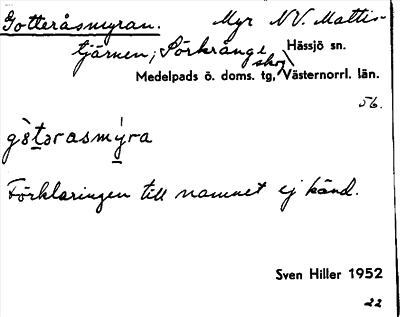 Gotteråsmyran. Myr NV. Mattis-
tjärnen; Sörkrånge skog Hässjö sn.
Medelpads ö. doms. tg, Västernorrl. län.
56.
gòt̲ərasmy̲ra
Förklaringen till namnet ej känd.
Sven Hiller 1952
22